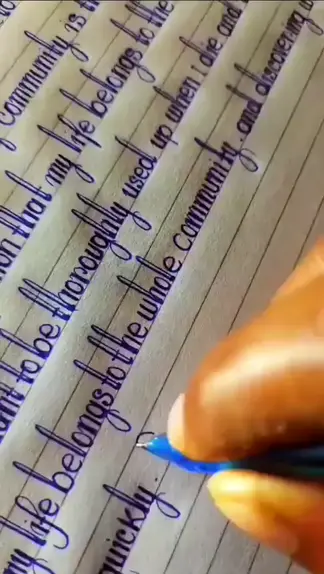 Community is th
on that my life belongs to the
ant to be thoroughly used up when i die and
my life belongs to the whole community, and discovering
quickly